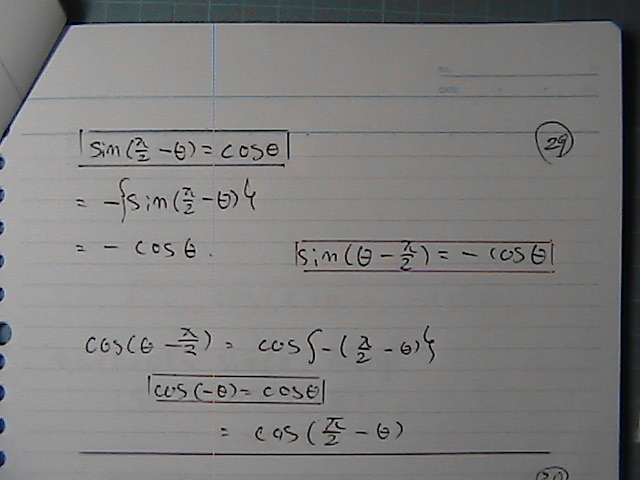 29
sin(π/2 - θ) = cosθ
= -{sin(π/2 - θ)}
= - cosθ.
sin(θ - π/2) = - cosθ
cos(θ - π/2) = cos{-(π/2 - θ)}
cos(-θ) = cosθ
= cos(π/2 - θ)